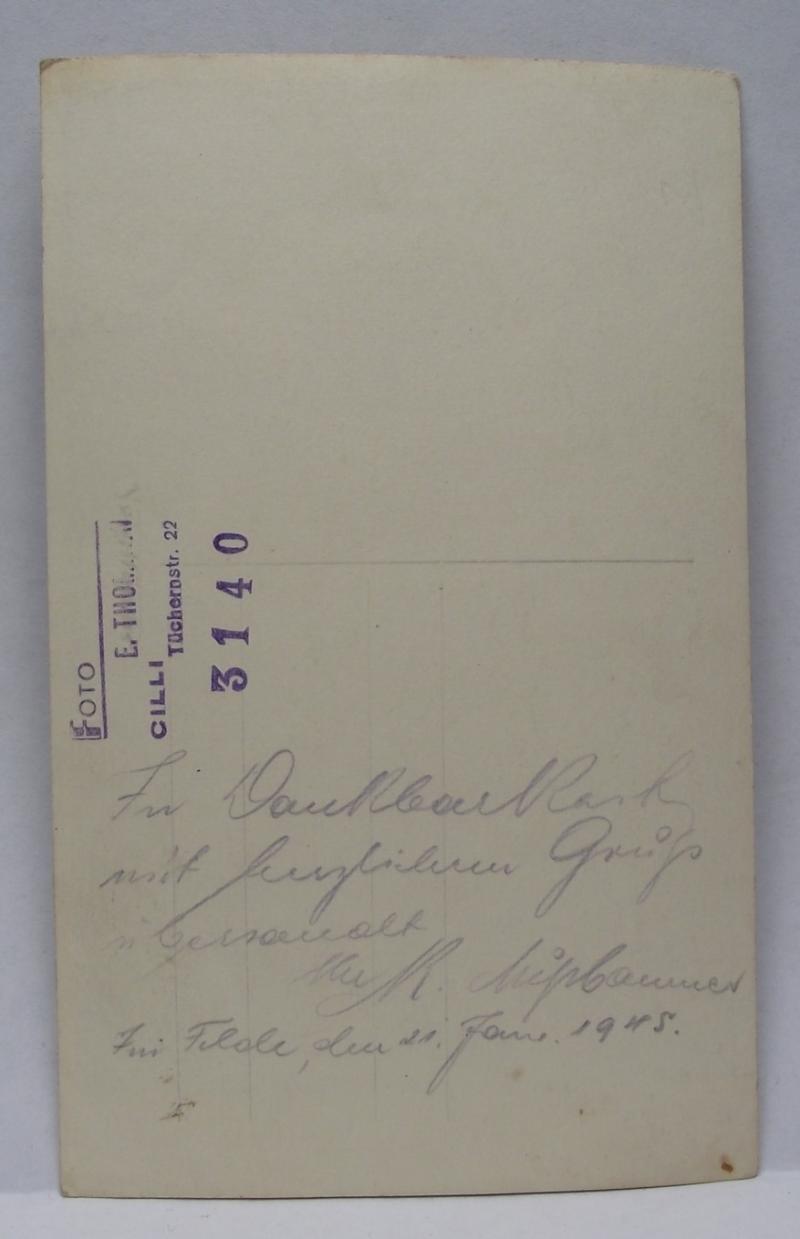 FOTO
E. THO
CILLI
Tüchernstr. 22
3140
In Dankbarkeit
mit herzlichem Gruß
übersandt
K. Nußbaumer
Im Felde, den 21. Jann. 1945.